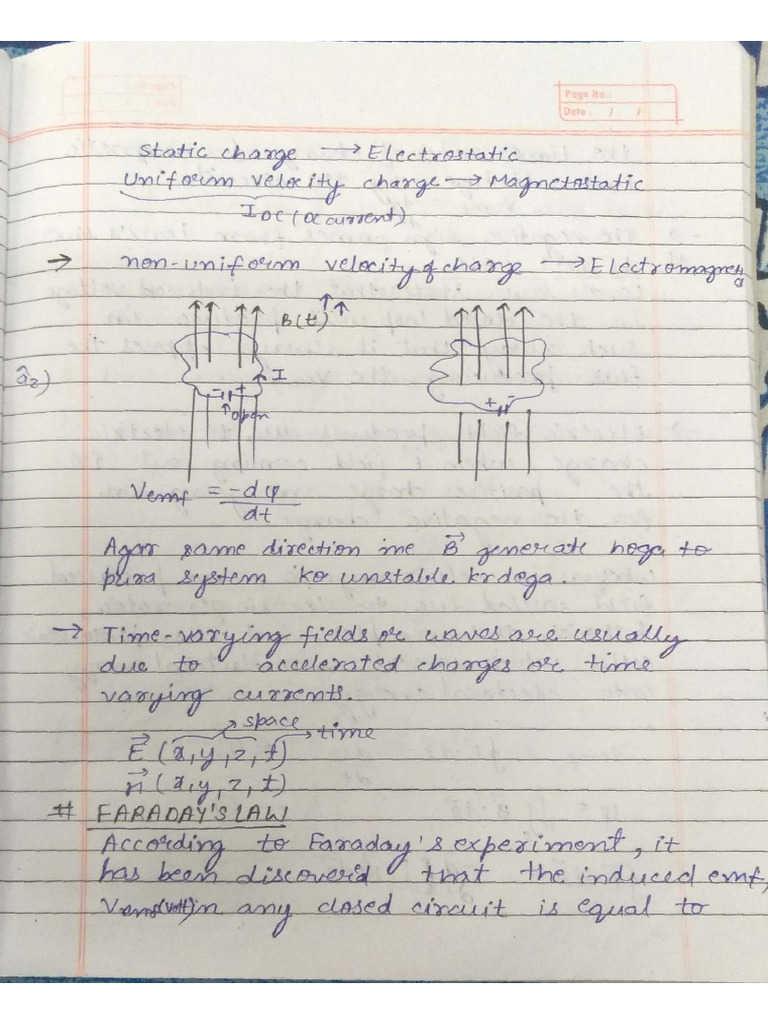 Page No.:
Date : / /
Static charge → Electrostatic
Uniform velocity charge → Magnetostatic
I DC (DC current)
→ non-uniform velocity of charge → Electromagnetic
B(t) ↑↑
âz)
I
- +
↑open
+ -
Vemf = -dψ/dt
Agar same direction me B⃗ generate hoga to
pura system ko unstable krdega.
→ Time-varying fields or waves are usually
due to accelerated charges or time
varying currents.
space
E⃗ (x, y, z, t) → time
H⃗ (x, y, z, t)
# FARADAY'S LAW
According to Faraday's experiment, it
has been discovered that the induced emf,
Vemf(volt) in any closed circuit is equal to